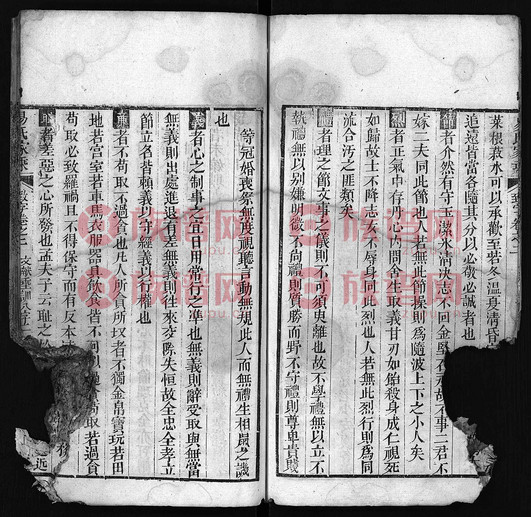 菜根菽水可以承歡至若冬溫夏凊昏
追遠皆當各隨其分以必敬必誠者也
節者介然有守玉潔冰清決志不回金堅石
嫁二夫同此節也人若無此節操則爲隨波上下之小人矣
烈者正氣中存丹心內閟舍生取義甘刃如飴殺身成仁視死
如歸故士不降志女不辱身同此烈也人若無此烈行則爲同
流合污之匪類矣
禮者理之節文事之儀則不可須臾離也故不學禮無以立不
執禮無以別嫌明微不尚禮則質勝而野不守禮則尊卑貴賤
等冠婚喪祭無度視聽言動無規此人而無禮生相鼠之譏
也
義者心之制事之宜日用常行之準也無義則辭受取與無當
無義則出處進退有差無義則往來交際失恒故全忠全孝立
節立名皆賴義以守經義以行權也
廉者不苟取不過貪也凡人所貪所取者不獨金帛寶玩若田
地若宮室若車馬衣服器具飲食皆不可以
苟取必致羅禍且不得保守而有反本
恥者羞惡之心所發也孟夫子云恥之於
易氏家乘
教字卷之二